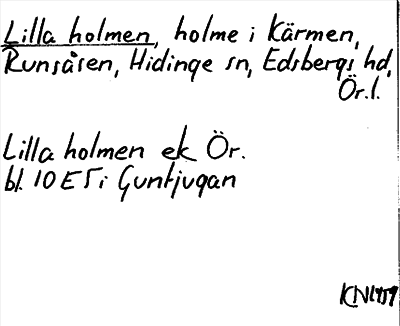 Lilla holmen, holme i Kärmen,
Runsåsen, Hidinge sn, Edsbergs hd,
Ör.l.
Lilla holmen ek Ör.
bl. 10 E 5 i Guntjugan